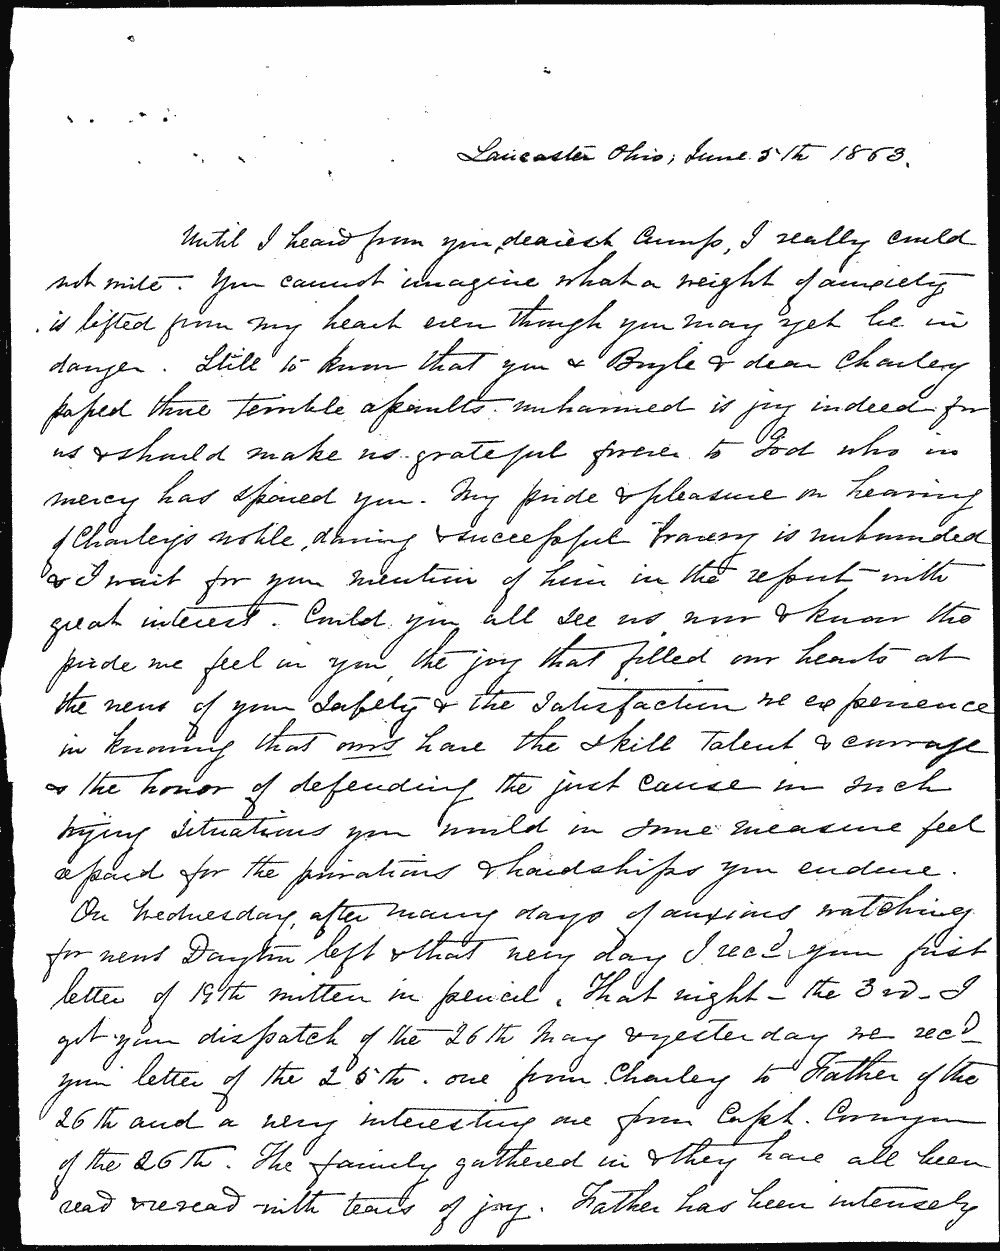 Lancaster Ohio, June 5th 1863.
Until I heard from you, dearest Cump, I really could
not write. You cannot imagine what a weight of anxiety
is lifted from my heart even though you may yet be in
danger. Still to know that you & Boyle & dear Charley
passed those terrible assaults unharmed is joy indeed for
us & should make us grateful forever to God who in
mercy has spared you. My pride & pleasure on hearing
of Charley's noble, daring & successful bravery is unbounded
& I wait for your mention of him in the report with
great interest. Could you all see us now & know the
pride we feel in you, the joy that filled our hearts at
the news of your safety & the satisfaction we experience
in knowing that ours have the skill talent & courage
& the honor of defending the just cause in such
trying situations you would in some measure feel
repaid for the privations & hardships you endure.
On Wednesday, after many days of anxious watching
for news Dayton left & that very day I recd. your first
letter of 19th written in pencil. That night - the 3rd - I
got your dispatch of the 26th May & yesterday we recd
your letter of the 25th. one from Charley to Father of the
26th and a very interesting one from Capt.
of the 26th. The family gathered in & they have all been
read & reread with tears of joy. Father has been intensely